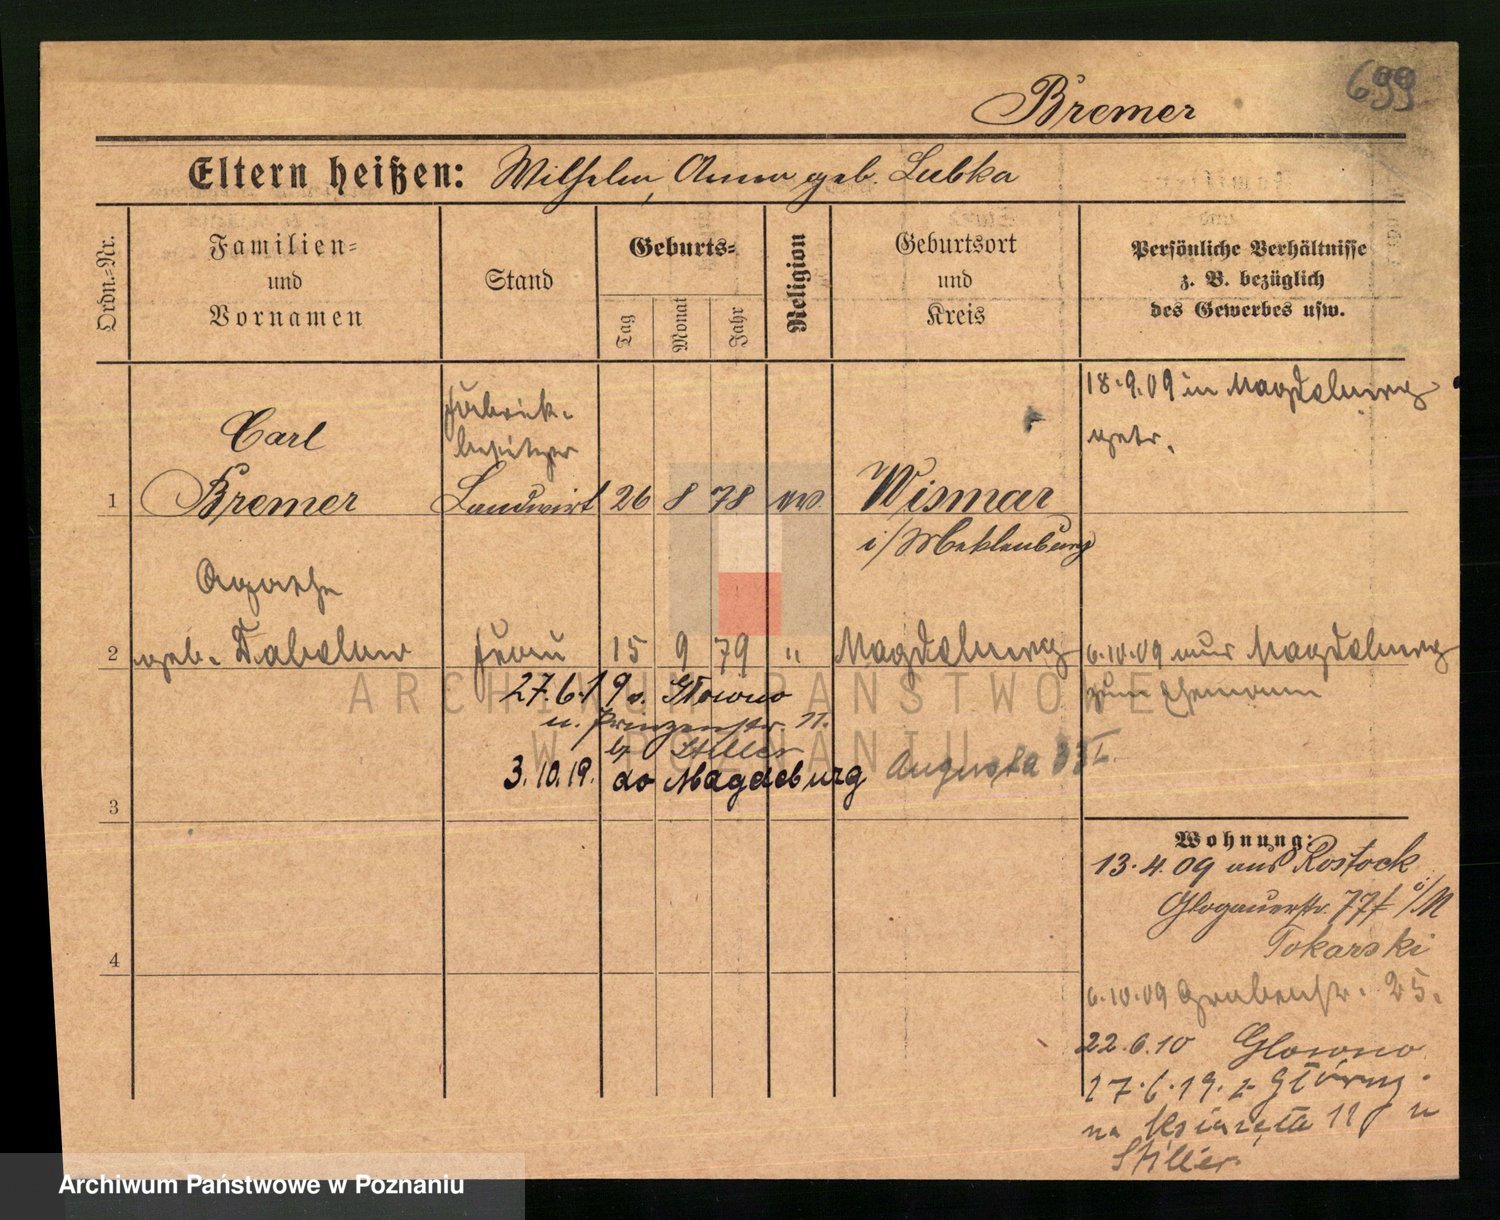 699
Bremer
Eltern heißen: Wilhelm, Anna geb. Lubka
Ordn.=Nr.
Familien=
und
Vornamen
Stand
Geburts=
Tag
Monat
Jahr
Religion
Geburtsort
und
Kreis
Persönliche Verhältnisse
z. B. bezüglich
des Gewerbes usw.
Carl
Fabrik-
besitzer
18.9.09 in Magdeburg
getr.
1 Bremer Landwirt 26 8 78 ev. Wismar
i/Meklenburg
Agathe
2 geb. Frau 15 9 79 " Magdeburg 6.10.09 aus Magdeburg
zum Ehemann
27.6.19 v. Głowno
n. Prinzenstr. 11.
b/ Stiller
3.10.19. do Magdeburg Augusta 33I.
3
Wohnung:
13.4.09 aus Rostock i/M
Glogauerstr. 77I
Tokarski
4
6.10.09 Grabenstr. 25.
22.6.10 Glowno
27.6.19. z
na Książęta 11 u
Stiller.
ARCHIWUM PAŃSTWOWE
W POZNANIU
Archiwum Państwowe w Poznaniu